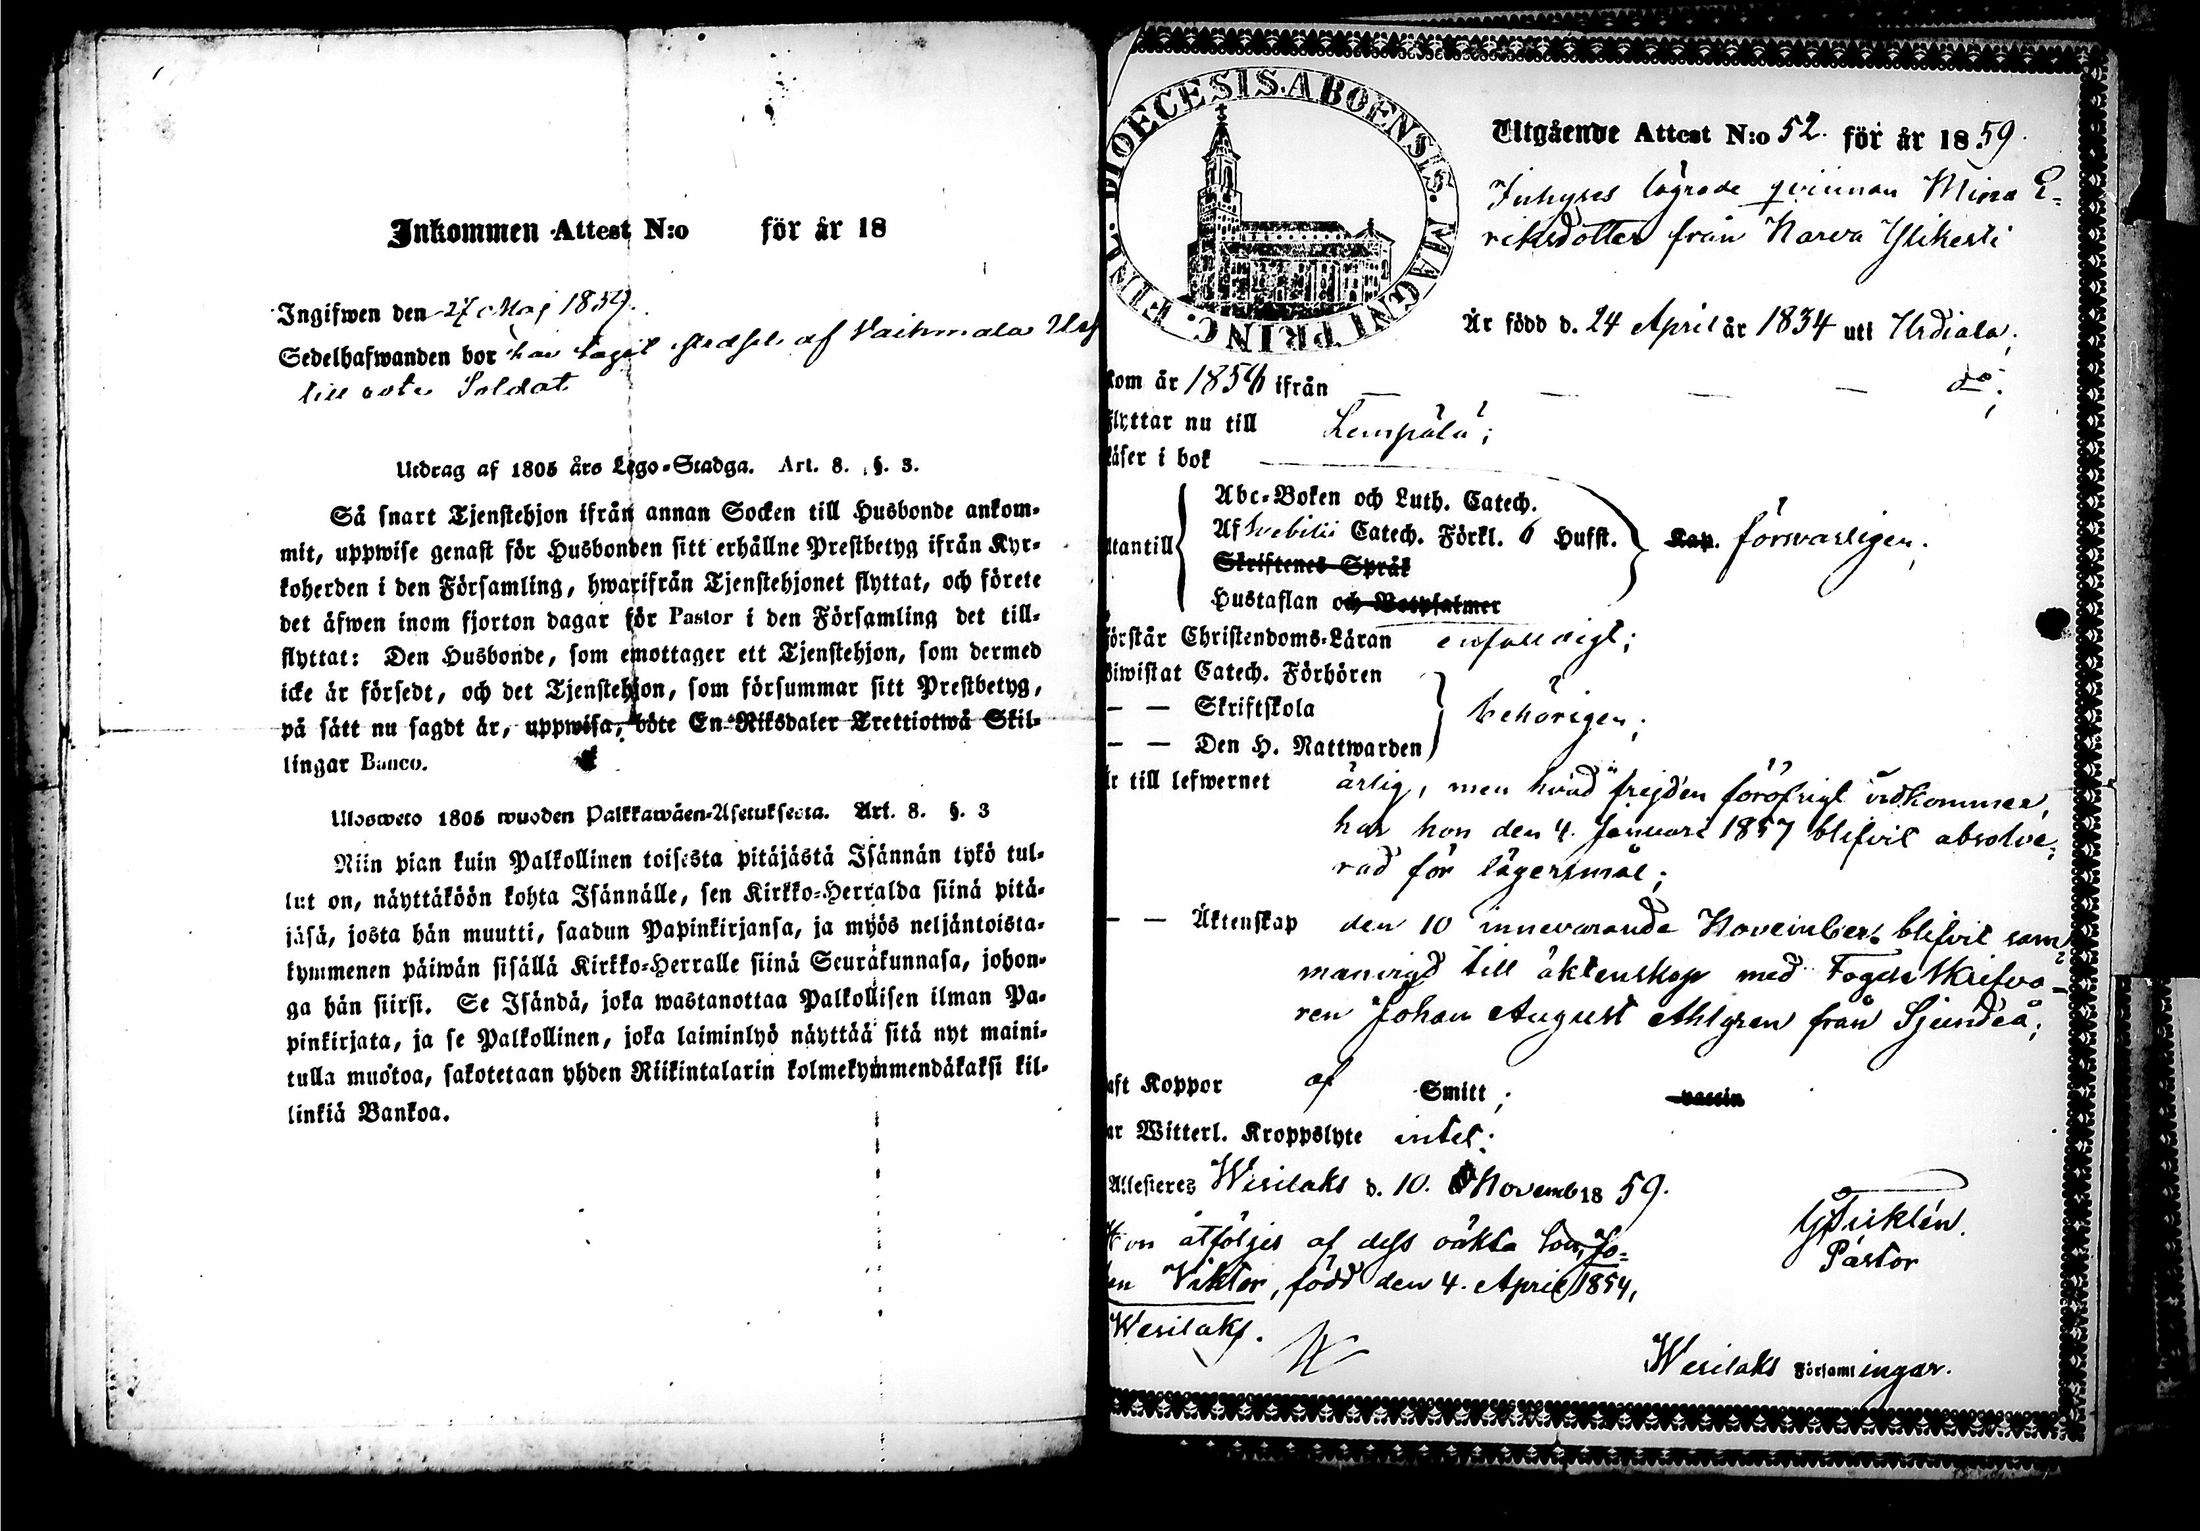 Inkommen Attest N:o för år 18
Ingifwen den 27 Maj 1859.
Sedelhafwanden bor har tagit af Vaihmala
till Soldat
Utdrag af 1805 års Lego-Stadga. Art. 8. §. 3.
Så snart Tjenstehjon ifrån annan Socken till Husbonde ankom-
mit, uppwise genast för Husbonden sitt erhållne Prestbetyg ifrån Kyr-
koherden i den Församling, hwarifrån Tjenstehjonet flyttat, och förete
det äfwen inom fjorton dagar för Pastor i den Församling det till-
flyttat: Den Husbonde, som emottager ett Tjenstehjon, som dermed
icke är försedt, och det Tjenstehjon, som försummar sitt Prestbetyg,
på sätt nu sagdt är, uppwisa, böte En Riksdaler Trettiotwå Skil-
lingar Banco.
Ulosweto 1805 wuoden Palkkawäen-Asetuksesta. Art. 8. §. 3
Niin pian kuin Palkollinen toisesta pitäjästä Isännän tykö tul-
lut on, näyttäköön kohta Isännälle, sen Kirkko-Herralda siinä pitä-
jäsä, josta hän muutti, saadun Papinkirjansa, ja myös neljäntoista-
kymmenen päiwän sisällä Kirkko-Herralle siinä Seurakunnasa, johon-
ga hän siirsi. Se Isändä, joka wastanottaa Palkollisen ilman Pa-
pinkirjata, ja se Palkollinen, joka laiminlyö näyttää sitä nyt maini-
tulla muotoa, sakotetaan yhden Riikintalarin kolmekymmendäkaksi kil-
linkiä Bankoa.
DIOECESIS. ABOENSIS. MAGNI PRINC. FINL.
Utgående Attest N:o 52. för år 1859.
Inhyses lägrade qvinnan Mina E-
riksdotter från Narva Ylikesti
Är född d. 24 April år 1834 uti Urdiala;
kom år 1856 ifrån — — — — do;
flyttar nu till Lempälä;
läser i bok
utantill Abc-Boken och Luth. Catech.
Af Svebilii Catech. Förkl. 6 Hufst. Kap. förswarligen;
Skriftenes Språk
Hustaflan och Botpsalmer
förstår Christendoms-Läran enfalldigt;
biwistat Catech. Förhören
— — Skriftskola behörigen;
— — Den H. Nattwarden
är till lefwernet ärlig, men hvad frejden föröfrigt vidkommer,
har hon den 4. Januari 1857 blifvit absolve-
rad för lägersmål;
— — Äktenskap den 10 innevarande November blifvit sam-
manvigd till äktenskap med Fogde Skrifva-
ren Johan August Ahlgren från Sjundeå;
haft Koppor af Smitt; vaccin
har Witterl. Kroppslyte intet;
Attesteres Wesilaks d. 10. Novemb 1859.
Hon åtföljes af dess oäkta Son, Jo-
han Viktor, född den 4. April 1854,
Wesilaks.
Pastor
Wesilaks Församlingar.